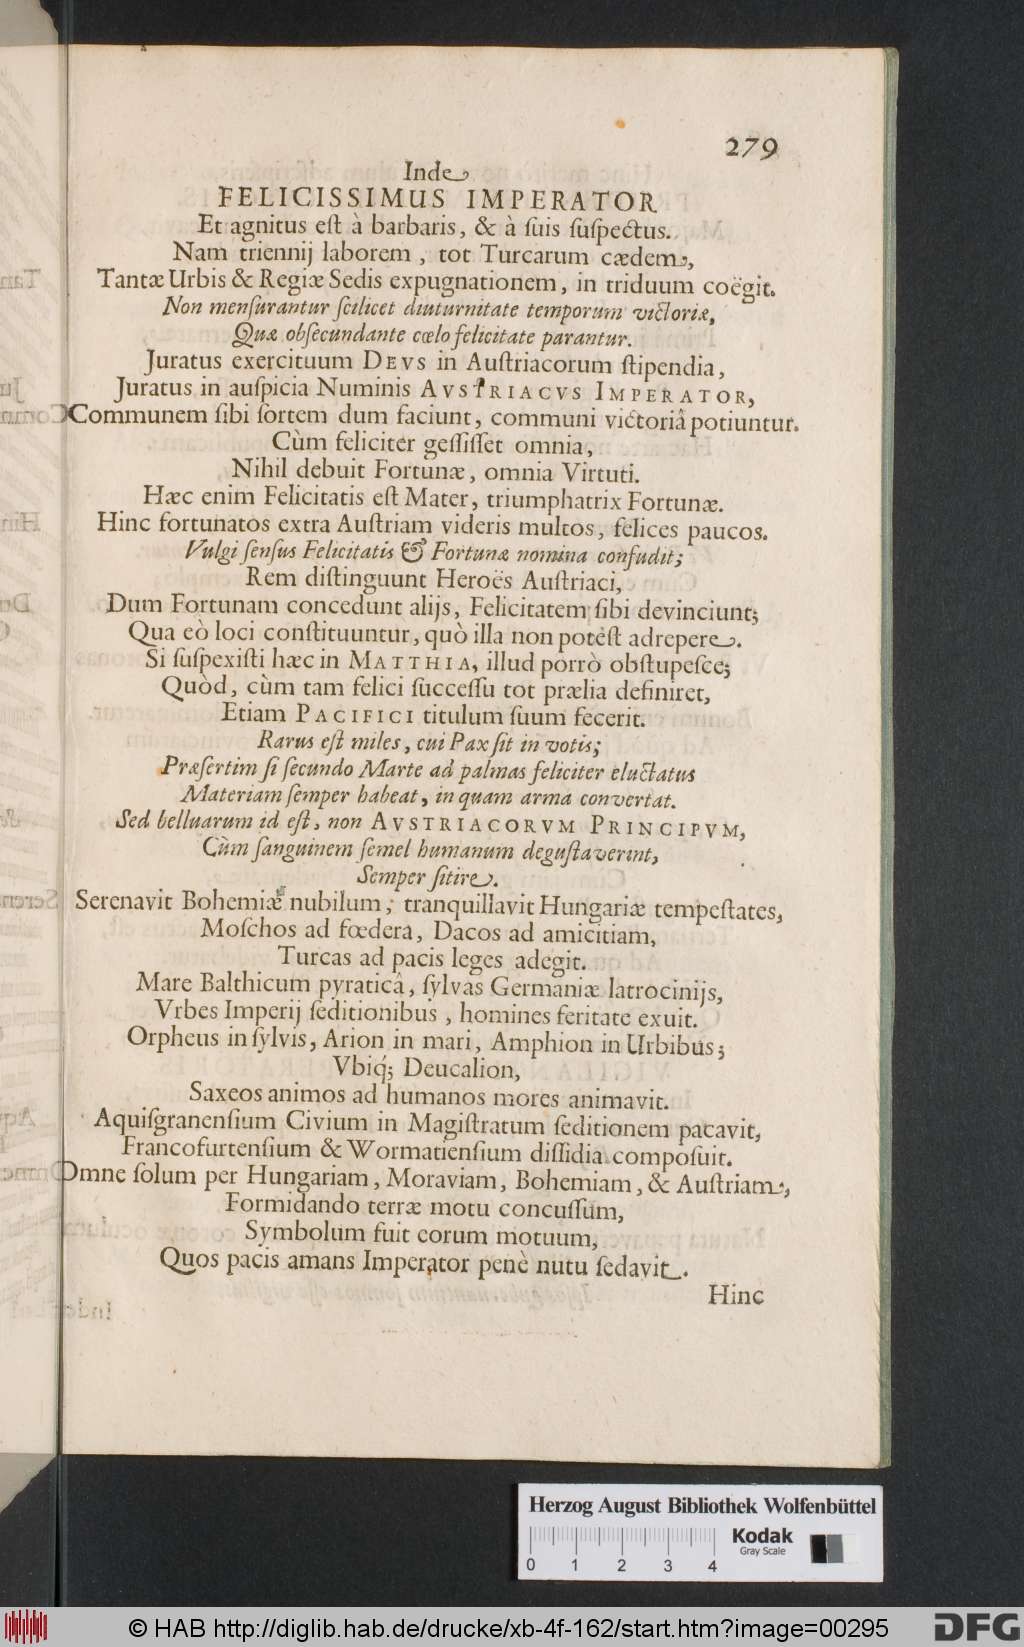 279
Inde
FELICISSIMUS IMPERATOR
Et agnitus est à barbaris, & à suis suspectus.
Nam triennij laborem, tot Turcarum cædem,
Tantæ Urbis & Regiæ Sedis expugnationem, in triduum coëgit.
Non mensurantur scilicet diuturnitate temporum victoriæ,
Quæ obsecundante cœlo felicitate parantur.
Juratus exercituum DEVS in Austriacorum stipendia,
Juratus in auspicia Numinis AVSTRIACVS IMPERATOR,
Communem sibi sortem dum faciunt, communi victoriâ potiuntur.
Cùm feliciter gessisset omnia,
Nihil debuit Fortunæ, omnia Virtuti.
Hæc enim Felicitatis est Mater, triumphatrix Fortunæ.
Hinc fortunatos extra Austriam videris multos, felices paucos.
Vulgi sensus Felicitatis & Fortunæ nomina confudit;
Rem distinguunt Heroës Austriaci,
Dum Fortunam concedunt alijs, Felicitatem sibi devinciunt;
Qua eò loci constituuntur, quò illa non potest adrepere.
Si suspexisti hæc in MATTHIA, illud porrò obstupesce;
Quòd, cùm tam felici successu tot prælia definiret,
Etiam PACIFICI titulum suum fecerit.
Rarus est miles, cui Pax sit in votis;
Præsertim si secundo Marte ad palmas feliciter eluctatus
Materiam semper habeat, in quam arma convertat.
Sed belluarum id est, non AVSTRIACORVM PRINCIPVM,
Cùm sanguinem semel humanum degustaverint,
Semper sitire.
Serenavit Bohemiæ nubilum, tranquillavit Hungariæ tempestates,
Moschos ad fœdera, Dacos ad amicitiam,
Turcas ad pacis leges adegit.
Mare Balthicum pyraticâ, sylvas Germaniæ latrocinijs,
Vrbes Imperij seditionibus, homines feritate exuit.
Orpheus in sylvis, Arion in mari, Amphion in Urbibus;
Vbiq́; Deucalion,
Saxeos animos ad humanos mores animavit.
Aquisgranensium Civium in Magistratum seditionem pacavit,
Francofurtensium & Wormatiensium dissidia composuit.
Omne solum per Hungariam, Moraviam, Bohemiam, & Austriam,
Formidando terræ motu concussum,
Symbolum fuit eorum motuum,
Quos pacis amans Imperator penè nutu sedavit.
Hinc
Herzog August Bibliothek Wolfenbüttel
0 1 2 3 4
Kodak
Gray Scale
© HAB http://diglib.hab.de/drucke/xb-4f-162/start.htm?image=00295
DFG